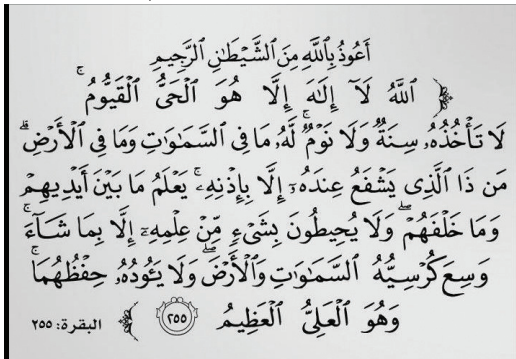 أَعُوذُ بِٱللَّهِ مِنَ ٱلشَّيۡطَٰنِ ٱلرَّجِيمِ
﴿ ٱللَّهُ لَآ إِلَٰهَ إِلَّا هُوَ ٱلۡحَيُّ ٱلۡقَيُّومُۚ
لَا تَأۡخُذُهُۥ سِنَةٞ وَلَا نَوۡمٞۚ لَّهُۥ مَا فِي ٱلسَّمَٰوَٰتِ وَمَا فِي ٱلۡأَرۡضِۗ
مَن ذَا ٱلَّذِي يَشۡفَعُ عِندَهُۥٓ إِلَّا بِإِذۡنِهِۦۚ يَعۡلَمُ مَا بَيۡنَ أَيۡدِيهِمۡ
وَمَا خَلۡفَهُمۡۖ وَلَا يُحِيطُونَ بِشَيۡءٖ مِّنۡ عِلۡمِهِۦٓ إِلَّا بِمَا شَآءَۚ
وَسِعَ كُرۡسِيُّهُ ٱلسَّمَٰوَٰتِ وَٱلۡأَرۡضَۖ وَلَا يَـُٔودُهُۥ حِفۡظُهُمَاۚ
وَهُوَ ٱلۡعَلِيُّ ٱلۡعَظِيمُ ٢٥٥ ﴾ البقرة: ٢٥٥